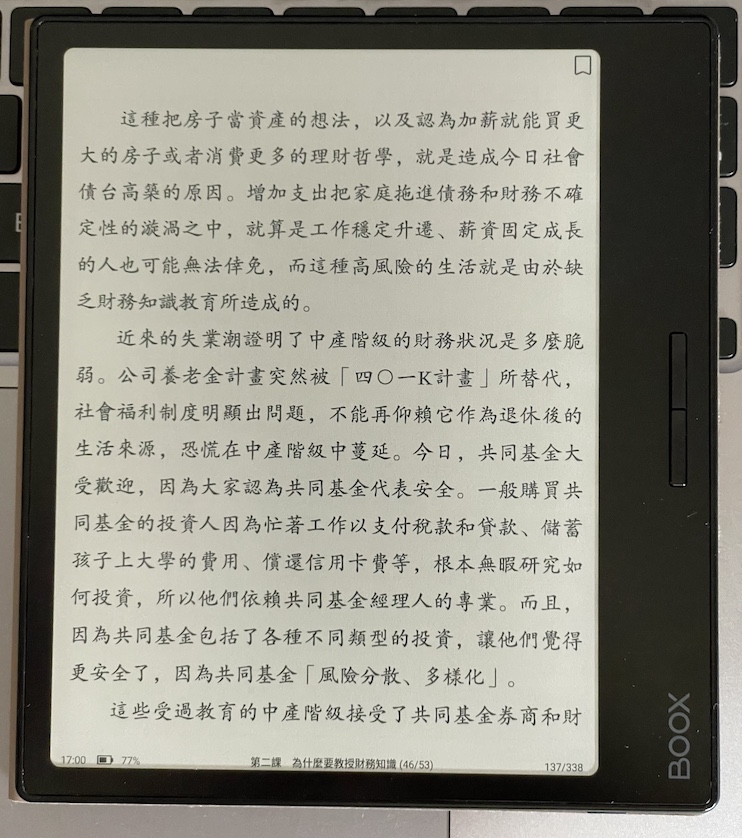 這種把房子當資產的想法，以及認為加薪就能買更
大的房子或者消費更多的理財哲學，就是造成今日社會
債台高築的原因。增加支出把家庭拖進債務和財務不確
定性的漩渦之中，就算是工作穩定升遷、薪資固定成長
的人也可能無法倖免，而這種高風險的生活就是由於缺
乏財務知識教育所造成的。
近來的失業潮證明了中產階級的財務狀況是多麼脆
弱。公司養老金計畫突然被「四〇一K計畫」所替代，
社會福利制度明顯出問題，不能再仰賴它作為退休後的
生活來源，恐慌在中產階級中蔓延。今日，共同基金大
受歡迎，因為大家認為共同基金代表安全。一般購買共
同基金的投資人因為忙著工作以支付稅款和貸款、儲蓄
孩子上大學的費用、償還信用卡費等，根本無暇研究如
何投資，所以他們依賴共同基金經理人的專業。而且，
因為共同基金包括了各種不同類型的投資，讓他們覺得
更安全了，因為共同基金「風險分散、多樣化」。
這些受過教育的中產階級接受了共同基金券商和財
17:00 77% 第二課 為什麼要教授財務知識 (46/53) 137/338
BOOX